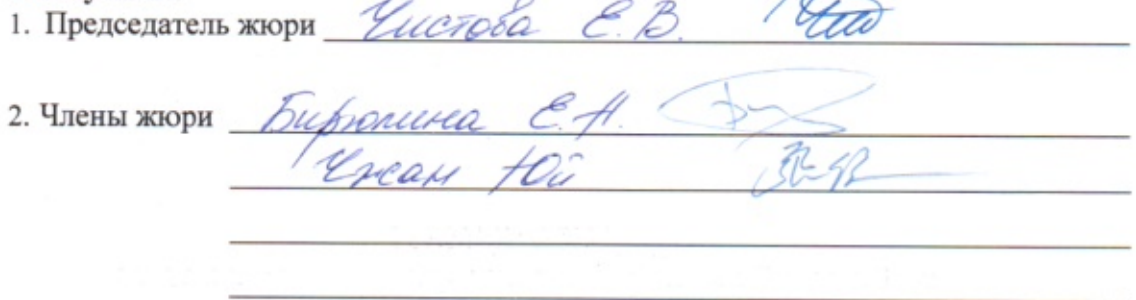 1. Председатель жюри Чистова Е.В.
2. Члены жюри Бирюлина Е.Н.
Чжан Юй